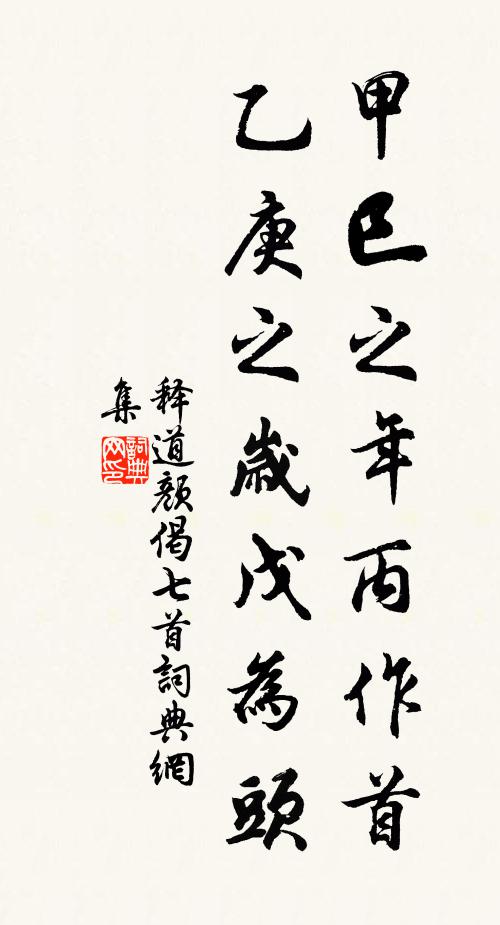 甲巳之年丙作首
乙庚之歲戊為頭
释道顏偈七首詞典網
集
詞典網印